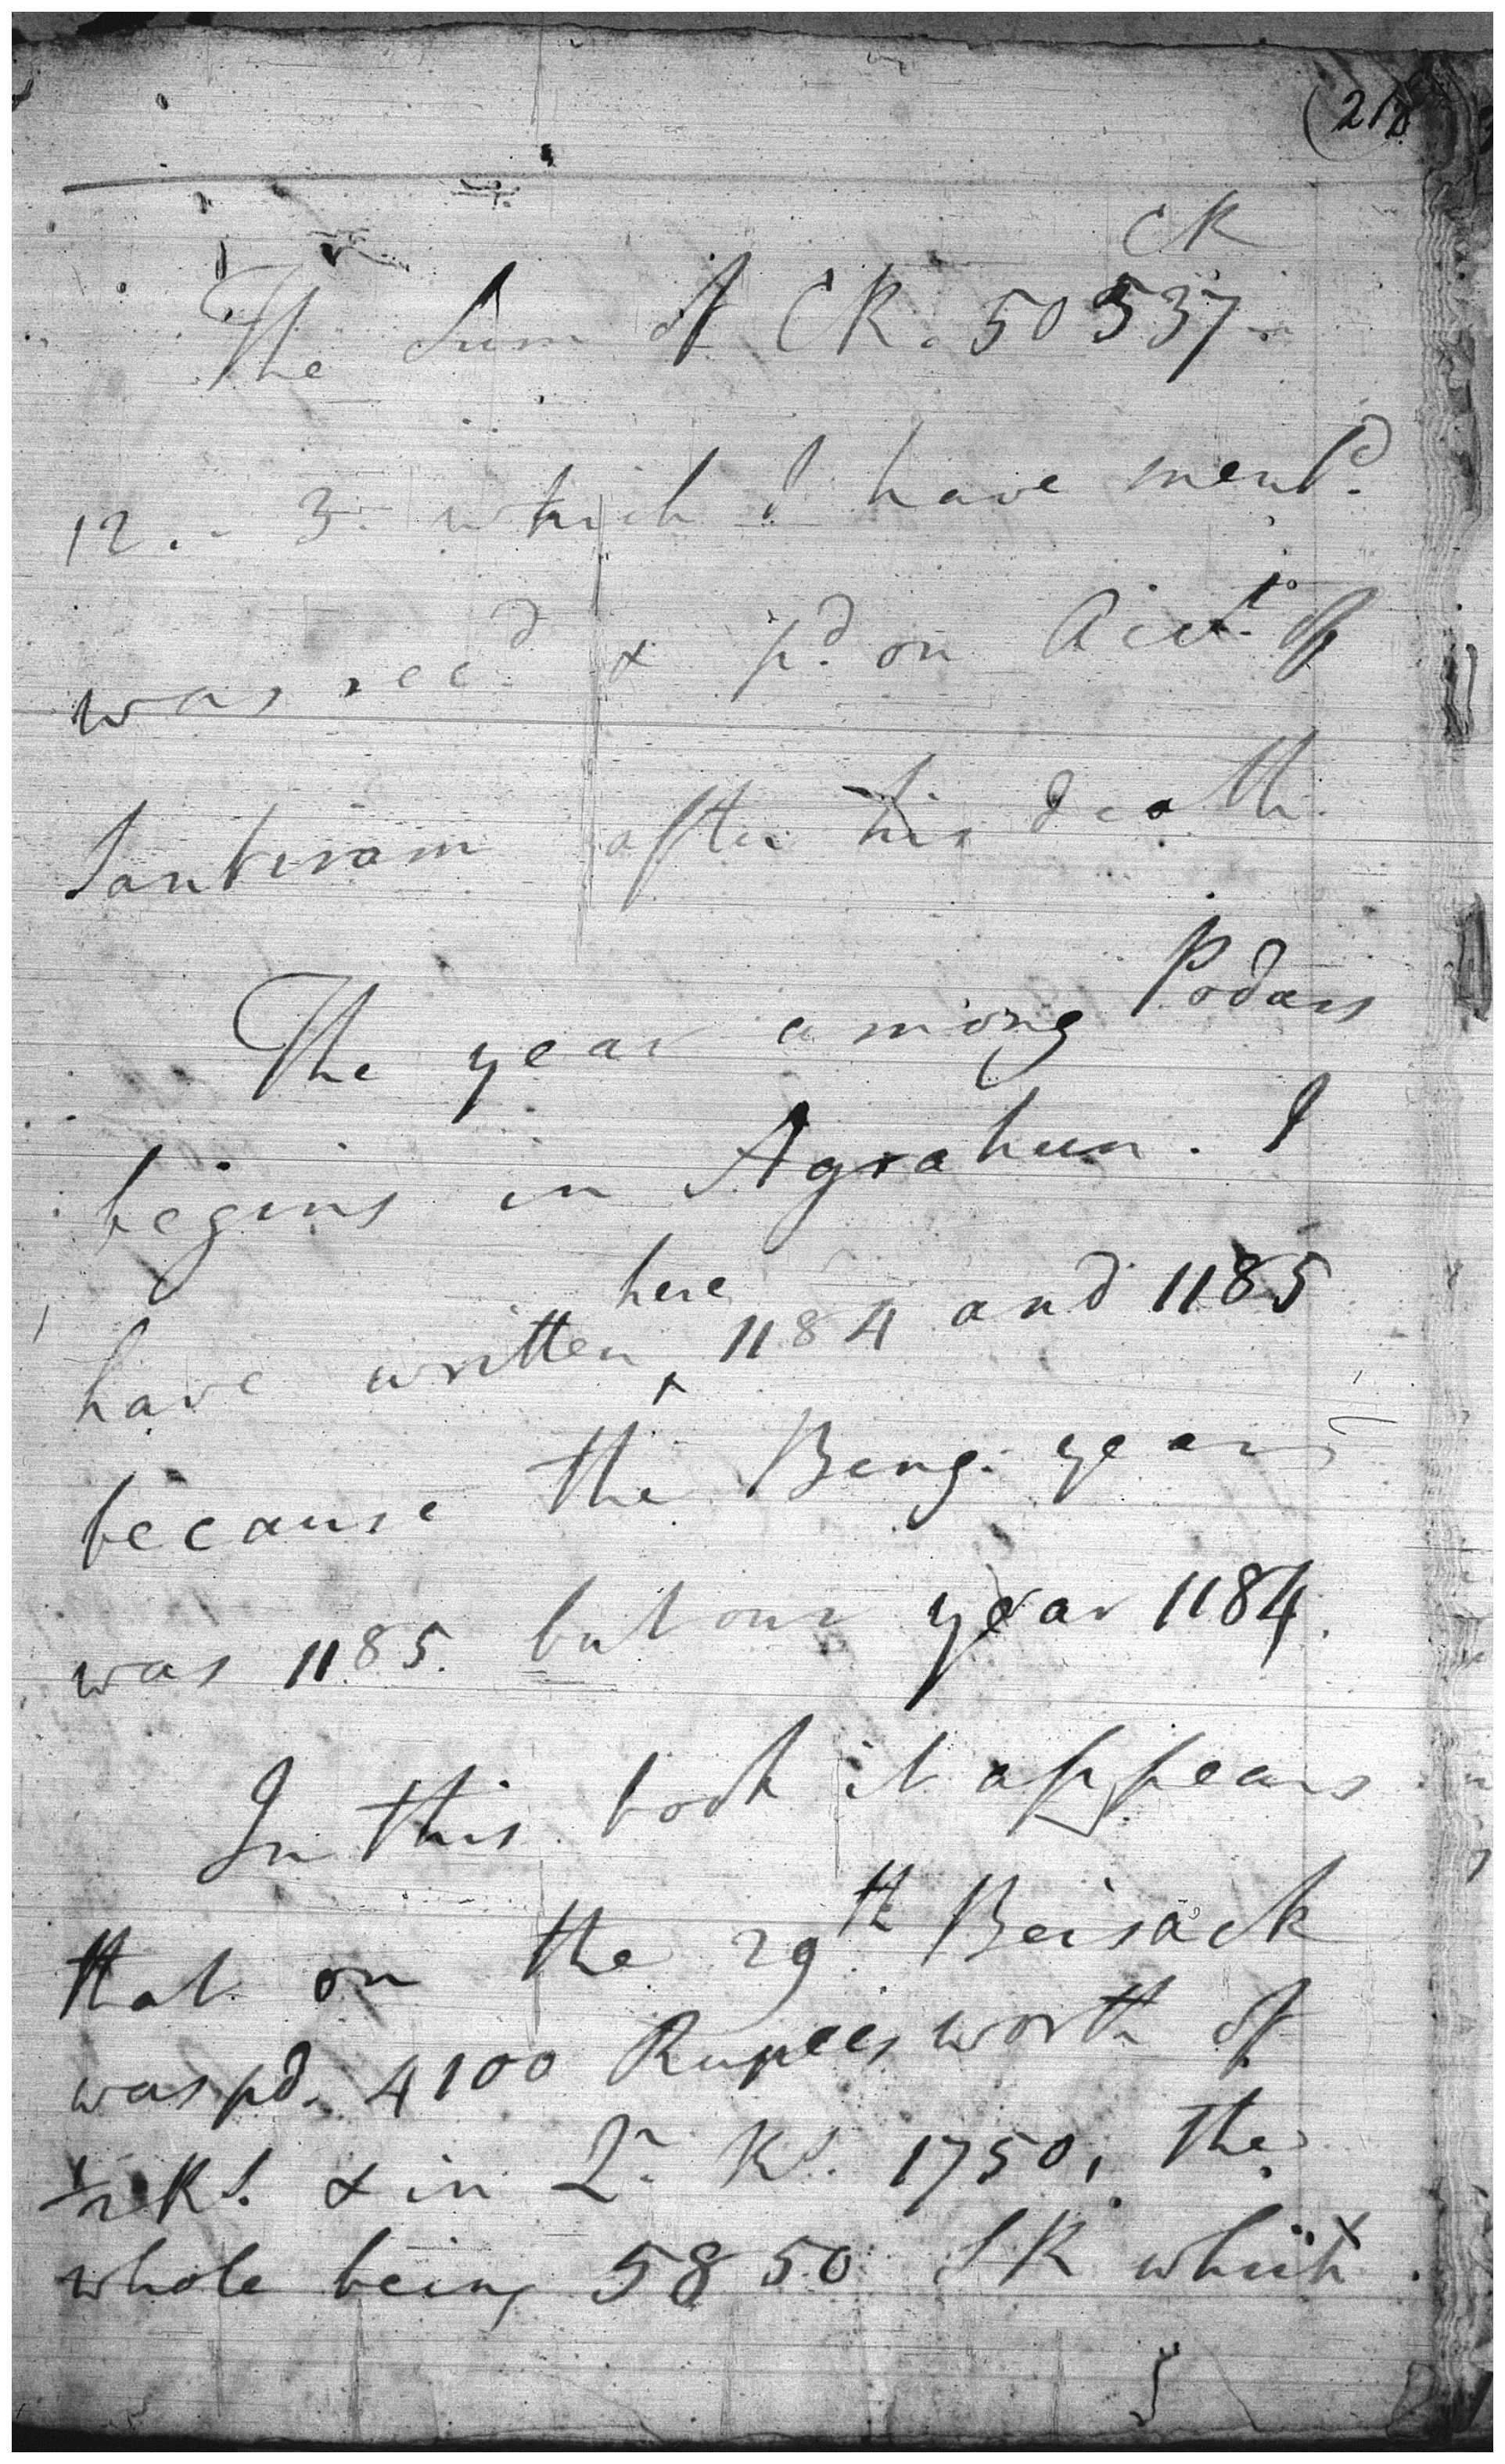 218
CK
The Sum of CR. 50537
12. - 3 which I have mentd.
was recd & pd. on Acct. of
Santiram after his death
The year among Podars
begins in Agrahun. I
here
have written 1184 and 1185
because the Beng. years
was 1185. but our year 1184.
In this book it appears
that on the 29th Beisack
was pd. 4100 Rupees worth of
1/2 Rs. & in Qr. Rs. 1750, the
whole being 5850 SR which